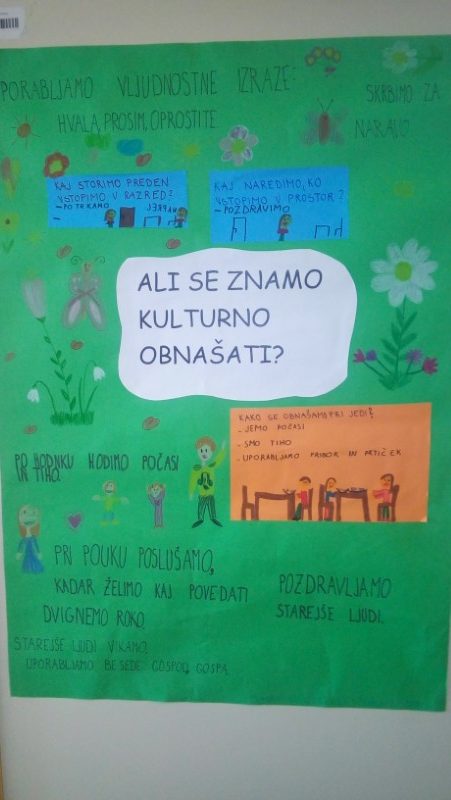 PORABLJAMO VLJUDNOSTNE IZRAZE:
HVALA, PROSIM, OPROSTITE.
SKRBIMO ZA
NARAVO.
KAJ STORIMO PREDEN
VSTOPIMO V RAZRED?
- POTRKAMO
KAJ NAREDIMO, KO
VSTOPIMO V PROSTOR?
- POZDRAVIMO
ALI SE ZNAMO
KULTURNO
OBNAŠATI?
KAKO SE OBNAŠAMO PRI JEDI?
- JEMO POČASI
- SMO TIHO
- UPORABLJAMO PRIBOR IN PRTIČEK
PO HODNIKU HODIMO POČASI
IN TIHO.
PRI POUKU POSLUŠAMO,
KADAR ŽELIMO KAJ POVEDATI
DVIGNEMO ROKO.
POZDRAVLJAMO
STAREJŠE LJUDI.
STAREJŠE LJUDI VIKAMO,
UPORABLJAMO BESEDE GOSPOD, GOSPA.